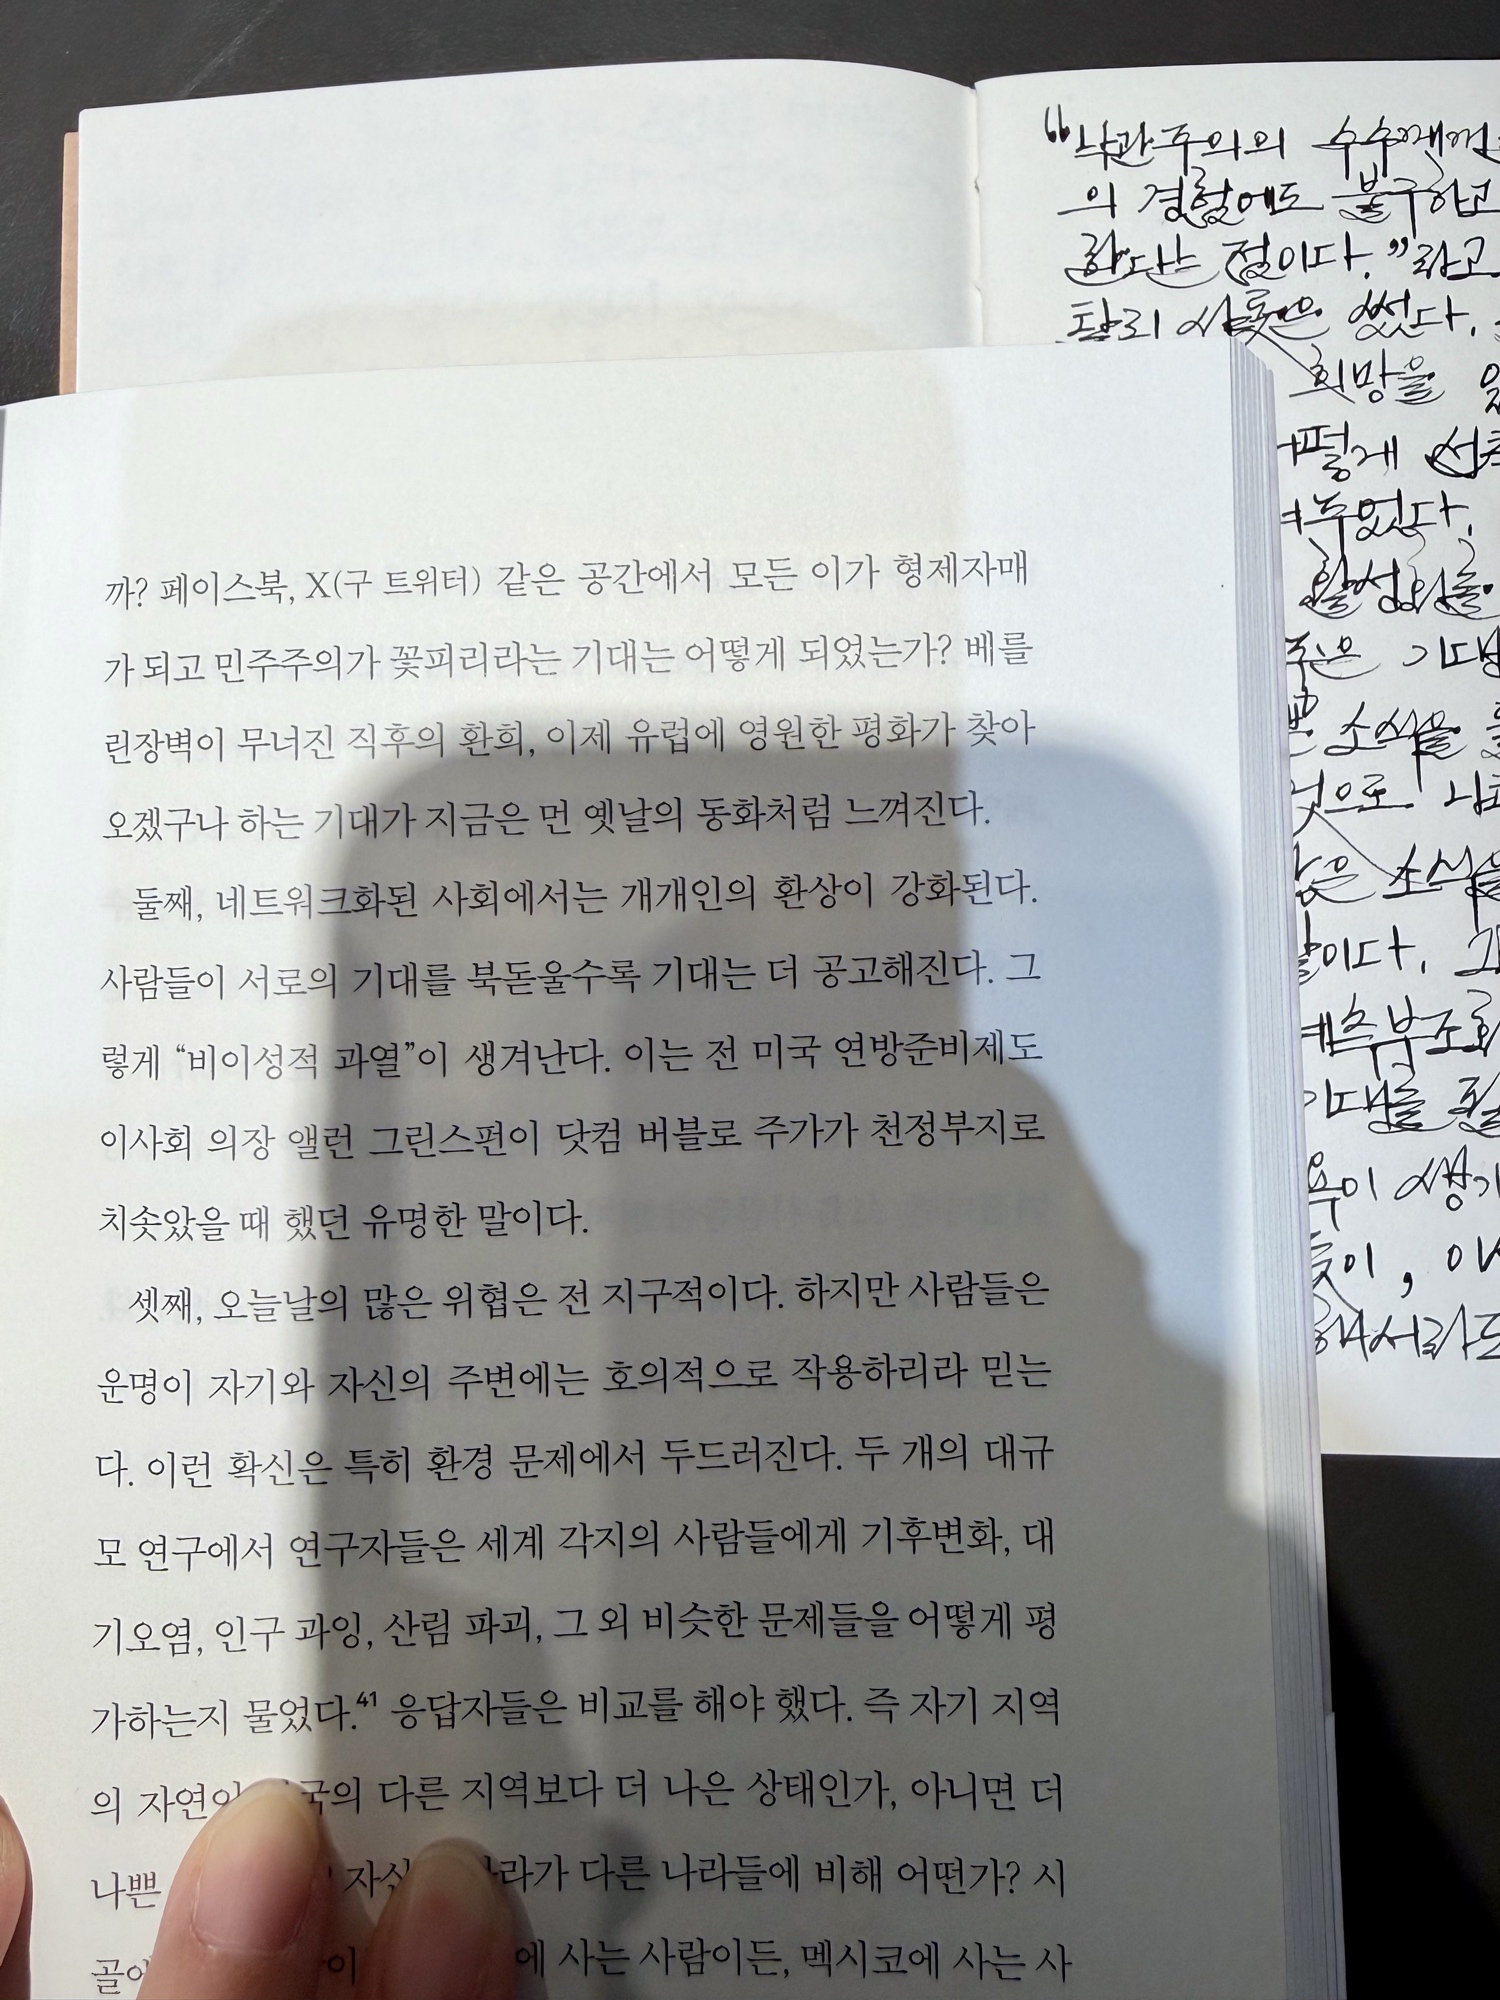 까? 페이스북, X(구 트위터) 같은 공간에서 모든 이가 형제자매
가 되고 민주주의가 꽃피리라는 기대는 어떻게 되었는가? 베를
린장벽이 무너진 직후의 환희, 이제 유럽에 영원한 평화가 찾아
오겠구나 하는 기대가 지금은 먼 옛날의 동화처럼 느껴진다.
둘째, 네트워크화된 사회에서는 개개인의 환상이 강화된다.
사람들이 서로의 기대를 북돋울수록 기대는 더 공고해진다. 그
렇게 “비이성적 과열”이 생겨난다. 이는 전 미국 연방준비제도
이사회 의장 앨런 그린스펀이 닷컴 버블로 주가가 천정부지로
치솟았을 때 했던 유명한 말이다.
셋째, 오늘날의 많은 위협은 전 지구적이다. 하지만 사람들은
운명이 자기와 자신의 주변에는 호의적으로 작용하리라 믿는
다. 이런 확신은 특히 환경 문제에서 두드러진다. 두 개의 대규
모 연구에서 연구자들은 세계 각지의 사람들에게 기후변화, 대
기오염, 인구 과잉, 산림 파괴, 그 외 비슷한 문제들을 어떻게 평
가하는지 물었다.⁴¹ 응답자들은 비교를 해야 했다. 즉 자기 지역
의 다른 지역보다 더 나은 상태인가, 아니면 더
나쁜 다른 나라들에 비해 어떤가? 시
에 사는 사람이든, 멕시코에 사는 사
“낙관주의의
의 경험에도 불구하고
화다는 점이다.”라고
탈리 샤롯은 썼다.
희망을
소식을
소식을